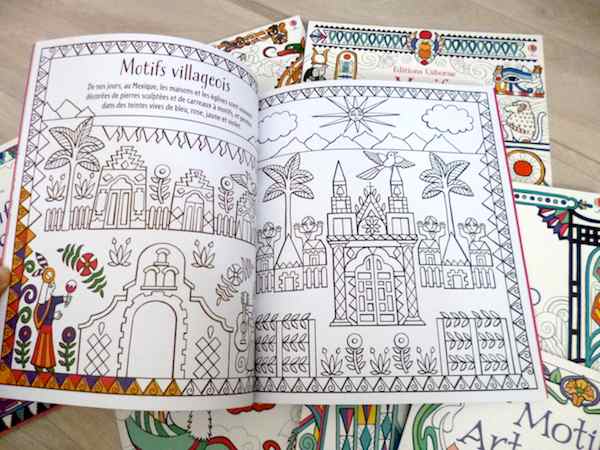 Motifs villageois
De nos jours, au Mexique, les maisons et les églises sont
décorées de pierres sculptées et de carreaux à motifs, et peintes
dans des teintes vives de bleu, rose, jaune et violet.
Éditions Usborne
Motifs
Art